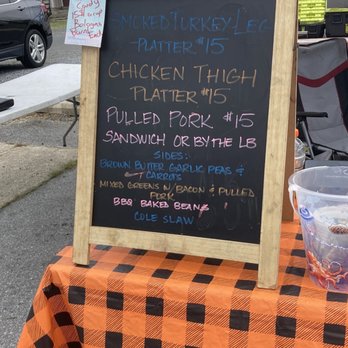 Candy
Bologna
Burnt
End
SMOKED TURKEY LEG
PLATTER $15
CHICKEN THIGH
PLATTER $15
PULLED PORK $15
SANDWICH OR BY THE LB
SIDES:
BROWN BUTTER GARLIC PEAS &
CARROTS
MIXED GREENS W/ BACON & PULLED
PORK
BBQ BAKED BEANS
COLE SLAW